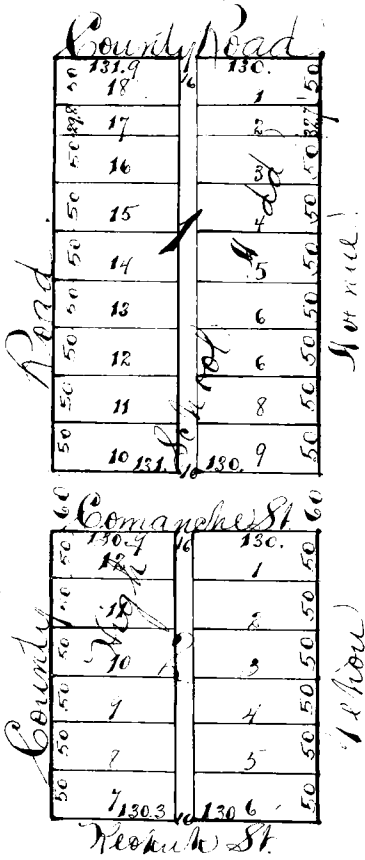 County Road
50 131.9 16 130. 50
18 1
29.8 17 2 32.7
50 16 3 50
50 15 4 50
50 14 5 50
50 13 6 50
50 12 6 50
50 11 8 50
50 10 131. 16 130. 9 50
Road
School
Add
60 Comanche St. 60
50 130.9 16 130. 50
12 1
50 11 2 50
50 10 3 50
50 9 4 50
50 8 5 50
50 7 130.3 16 130 6 50
County
High
Keokuk St.